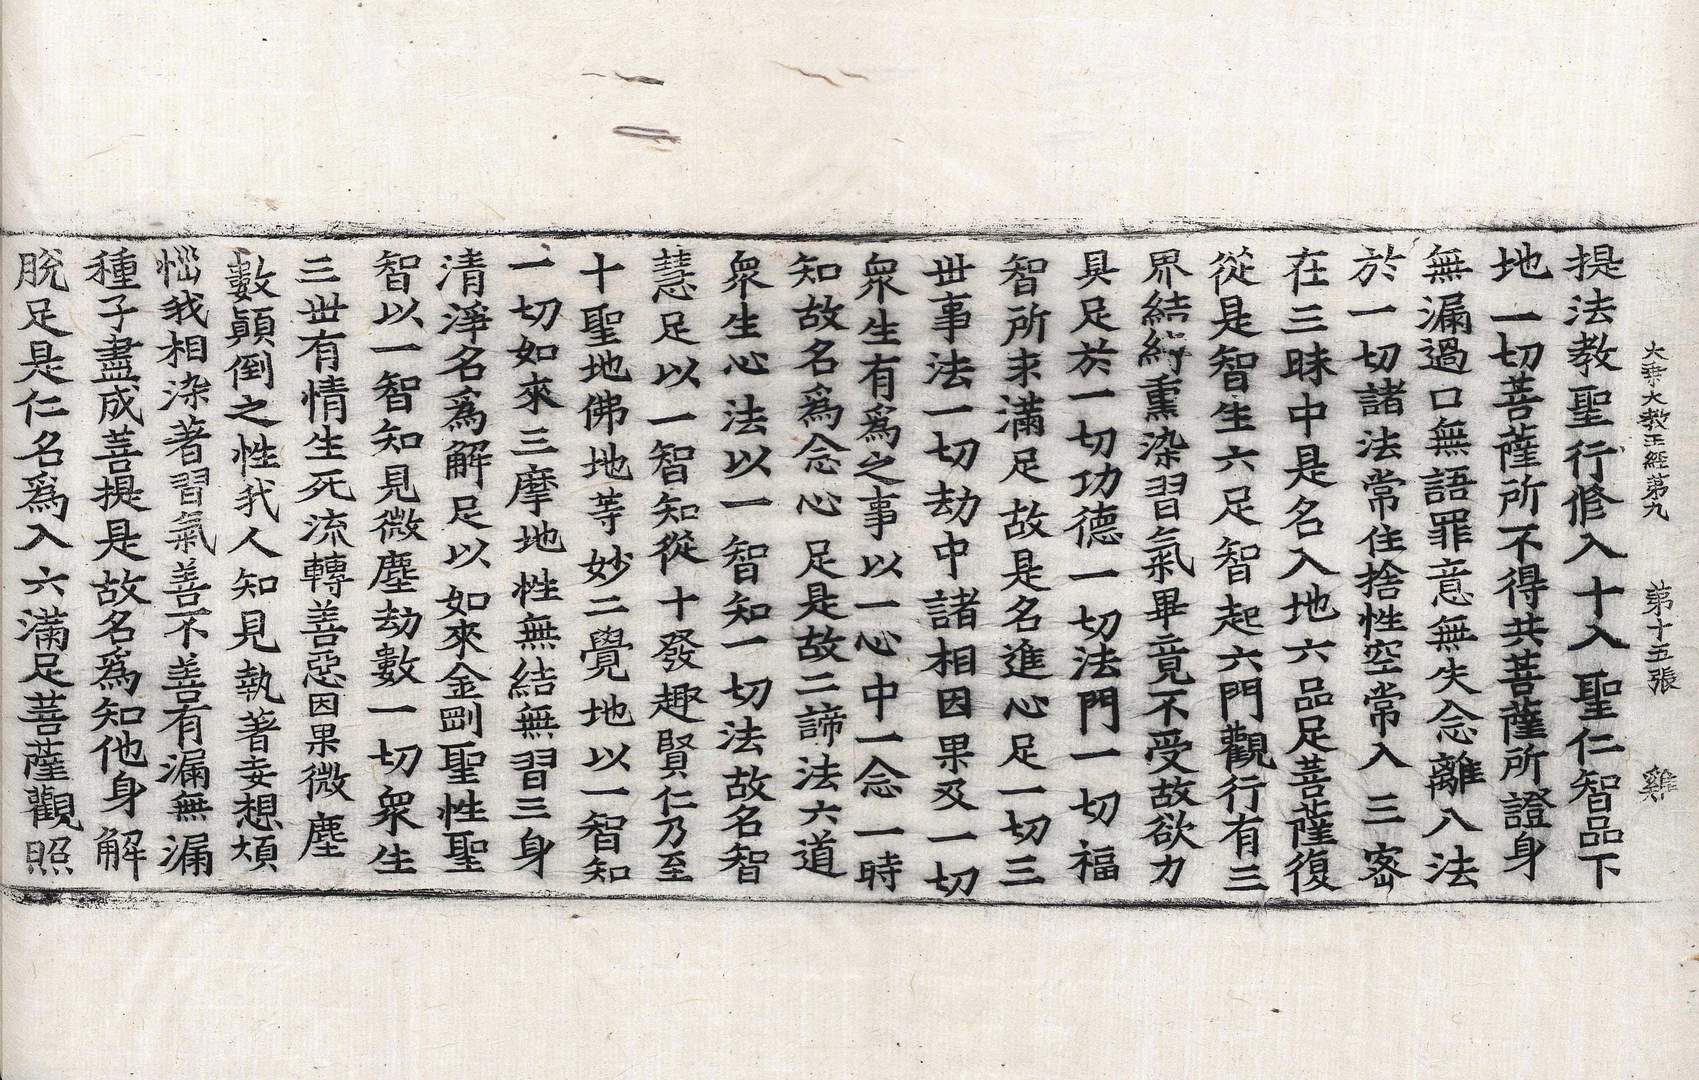 大乘大教王經第九 第十五張 雞
提法教聖行修入十入聖仁智品下
地一切菩薩所不得共菩薩所證身
無漏過口無語罪意無失念離八法
於一切諸法常住捨性空常入三密
在三昧中是名入地六品足菩薩復
從是智生六足智起六門觀行有三
界結縛熏染習氣畢竟不受故欲力
具足於一切功德一切法門一切福
智所求滿足故是名進心足一切三
世事法一切劫中諸相因果及一切
衆生有爲之事以一心中一念一時
知故名爲念心足是故二諦法六道
衆生心法以一智知一切法故名智
慧足以一智知從十發趣賢仁乃至
十聖地佛地等妙二覺地以一智知
一切如來三摩地性無結無習三身
清淨名爲解足以如來金剛聖性聖
智以一智知見微塵劫數一切衆生
三世有情生死流轉善惡因果微塵
數顚倒之性我人知見執著妄想煩
惱我相染著習氣善不善有漏無漏
種子盡成菩提是故名爲知他身解
脫足是仁名爲入六滿足菩薩觀照